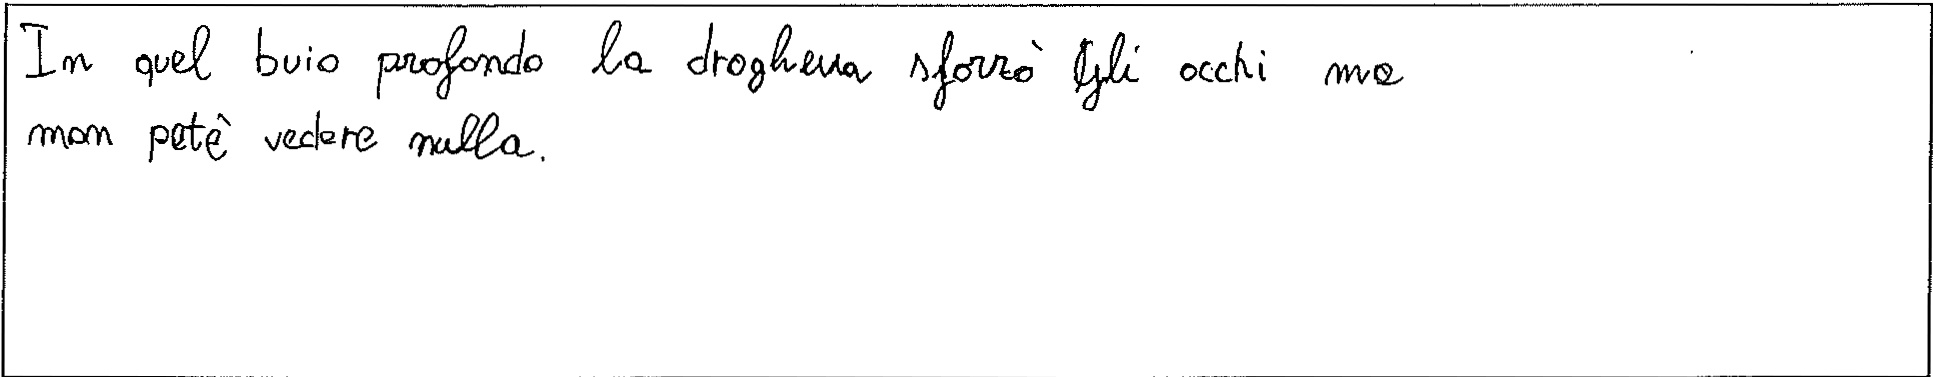 In quel buio profondo la droghera sforzò gli occhi ma
non potè vedere nulla.